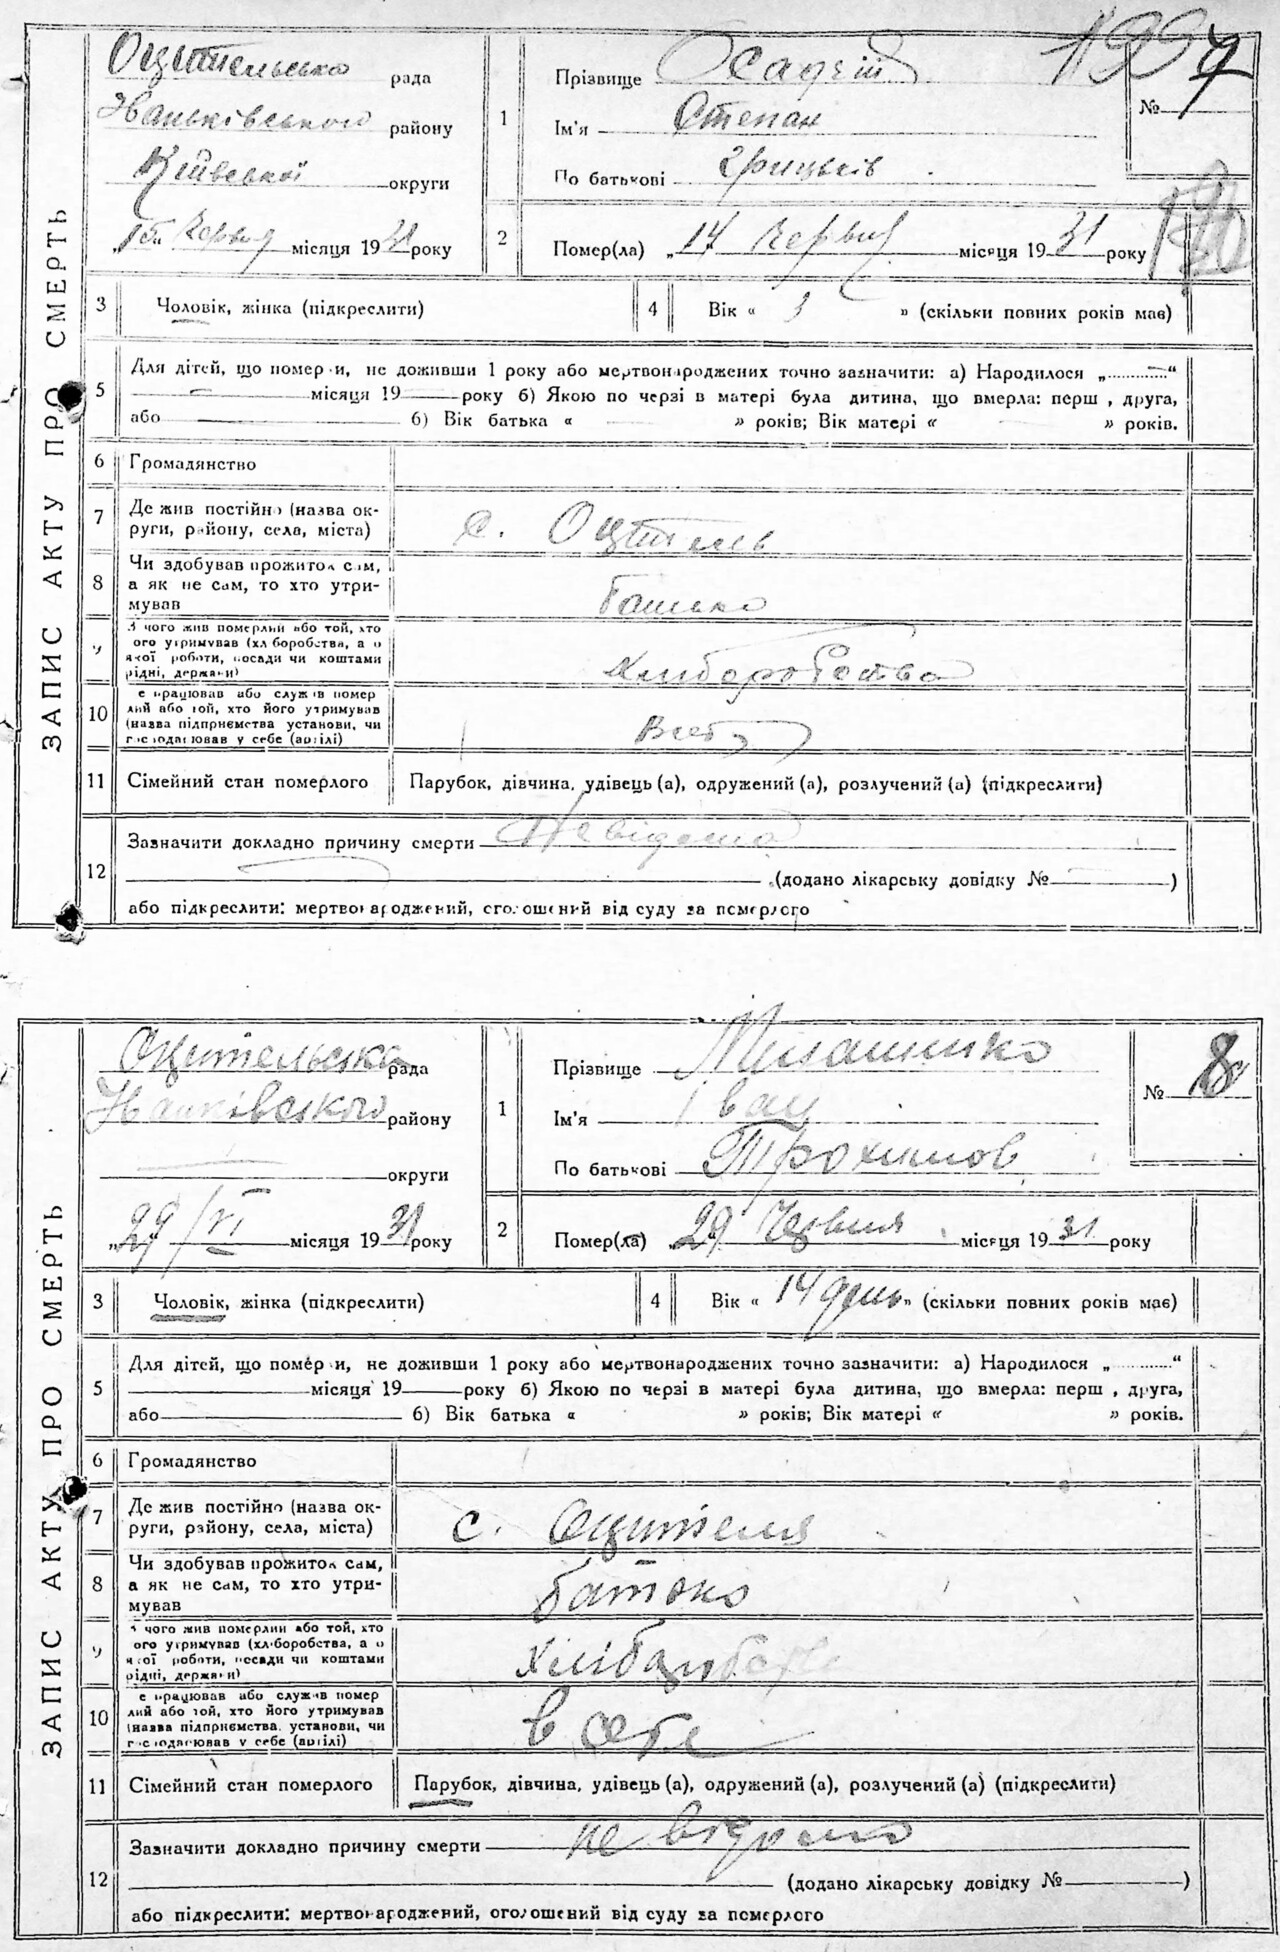 ЗАПИС АКТУ ПРО СМЕРТЬ
Оцительська рада
Іваньківського району
Київської округи
„15“ Червня місяця 1931 року
1
Прізвище Осадчій
Ім'я Степан
По батькові Грицьків
№ 7
2
Помер(ла) „14 Червня місяця 1931 року
3 Чоловік, жінка (підкреслити)
4 Вік « 3 » (скільки повних років має)
5 Для дітей, що помер и, не доживши 1 року або мертвонароджених точно зазначити: а) Народилося „............“
місяця 19 року б) Якою по черзі в матері була дитина, що вмерла: перш , друга,
або б) Вік батька « » років; Вік матері « » років.
6 Громадянство
7 Де жив постійно (назва ок-
руги, району, села, міста)
с. Оцитель
8 Чи здобував прожиток сам,
а як не сам, то хто утри-
мував
батько
9 З чого жив померлий або той, хто
ого утримував (хл боробства, а о
якої роботи, посади чи коштами
рідні, держави)
Хліборобства
10 е працював або служив помер
лий або той, хто його утримував
(назва підприємства установи, чи
господарював у себе (артілі)
11 Сімейний стан померлого Парубок, дівчина, удівець (а), одружений (а), розлучений (а) (підкреслити)
12 Зазначити докладно причину смерти Невідома
(додано лікарську довідку № )
або підкреслити: мертвонароджений, оголошений від суду за померлого
ЗАПИС АКТУ ПРО СМЕРТЬ
Оцительська рада
Іванківського району
округи
„29/VI місяця 1931 року
1
Прізвище
Ім'я Іван
По батькові Трохимов
№ 8
2
Помер(ла) „29 Червня місяця 1931 року
3 Чоловік, жінка (підкреслити)
4 Вік « 14 день » (скільки повних років має)
5 Для дітей, що помер и, не доживши 1 року або мертвонароджених точно зазначити: а) Народилося „............“
місяця 19 року б) Якою по черзі в матері була дитина, що вмерла: перш , друга,
або б) Вік батька « » років; Вік матері « » років.
6 Громадянство
7 Де жив постійно (назва ок-
руги, району, села, міста)
с. Оцителя
8 Чи здобував прожиток сам,
а як не сам, то хто утри-
мував
батько
9 З чого жив померлий або той, хто
ого утримував (хліборобства, а о
якої роботи, посади чи коштами
рідні, держави)
10 е працював або служив помер
лий або той, хто його утримував
(назва підприємства, установи, чи
господарював у себе (артілі)
в себе
11 Сімейний стан померлого Парубок, дівчина, удівець (а), одружений (а), розлучений (а) (підкреслити)
12 Зазначити докладно причину смерти не відомо
(додано лікарську довідку № )
або підкреслити: мертвонароджений, оголошений від суду за померлого